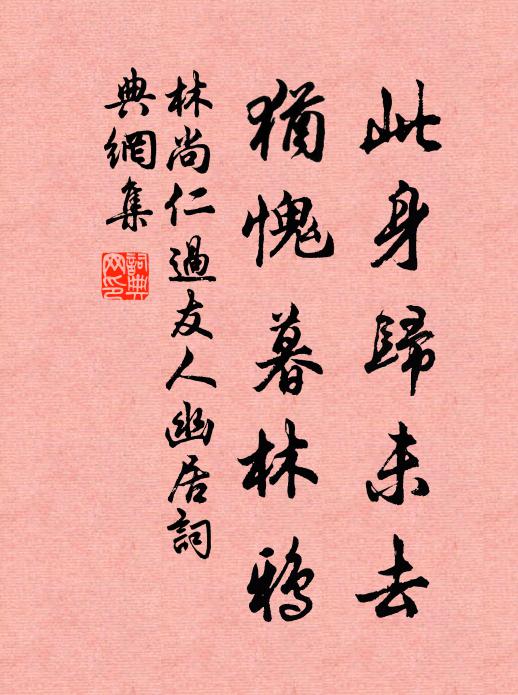 此身歸未去
猶愧暮林鴉
林尚仁過友人幽居詞
典網集
詞典
网印